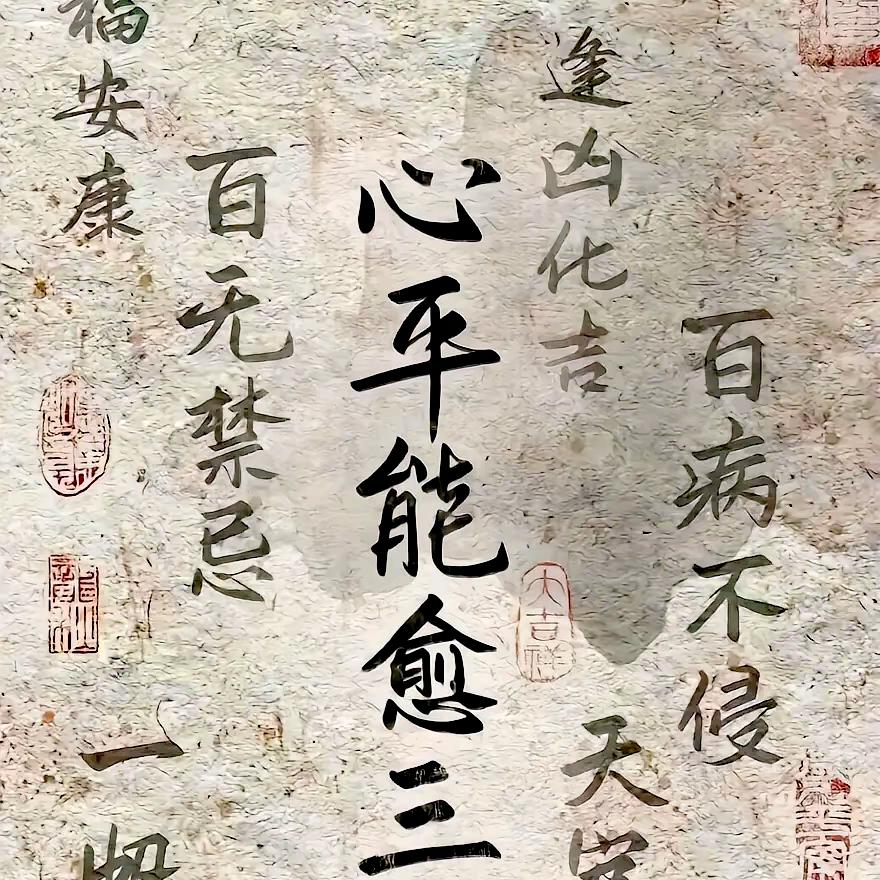 百病不侵
逢凶化吉
天官
心平能愈三
大吉祥
百无禁忌
福安康
一切